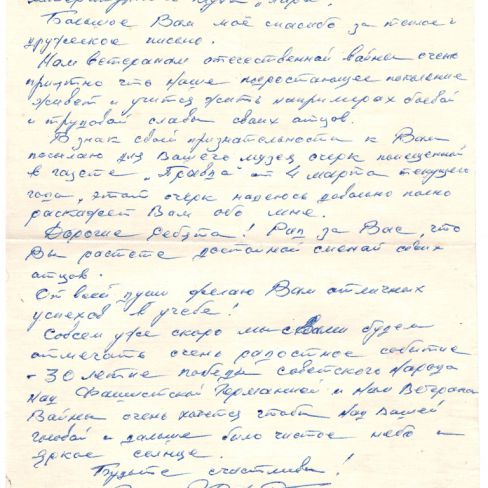 Большое Вам моё спасибо за теплое и
дружеское письмо.
Нам ветеранам отечественной войны очень
приятно что наше подростающее поколение
живет и учится жить на примерах боевой
и трудовой славы своих отцов.
В знак своей признательности к Вам
посылаю для Вашего музея очерк помещенный
в газете „Правда" от 4 марта текущего
года, этот очерк надеюсь довольно полно
раскажет Вам обо мне.
Дорогие ребята! Рад за Вас, что
Вы растете достойной сменой своих
отцов.
От всей души желаю Вам отличных
успехов в учебе!
Совсем уже скоро мы с Вами будем
отмечать очень радостное событие
- 30 летие победы советского народа
над Фашистской Германией и нам Ветеранам
Войны очень хочется чтобы над Вашей
головой и дальше было чистое небо и
яркое солнце.
Будьте счастливы!